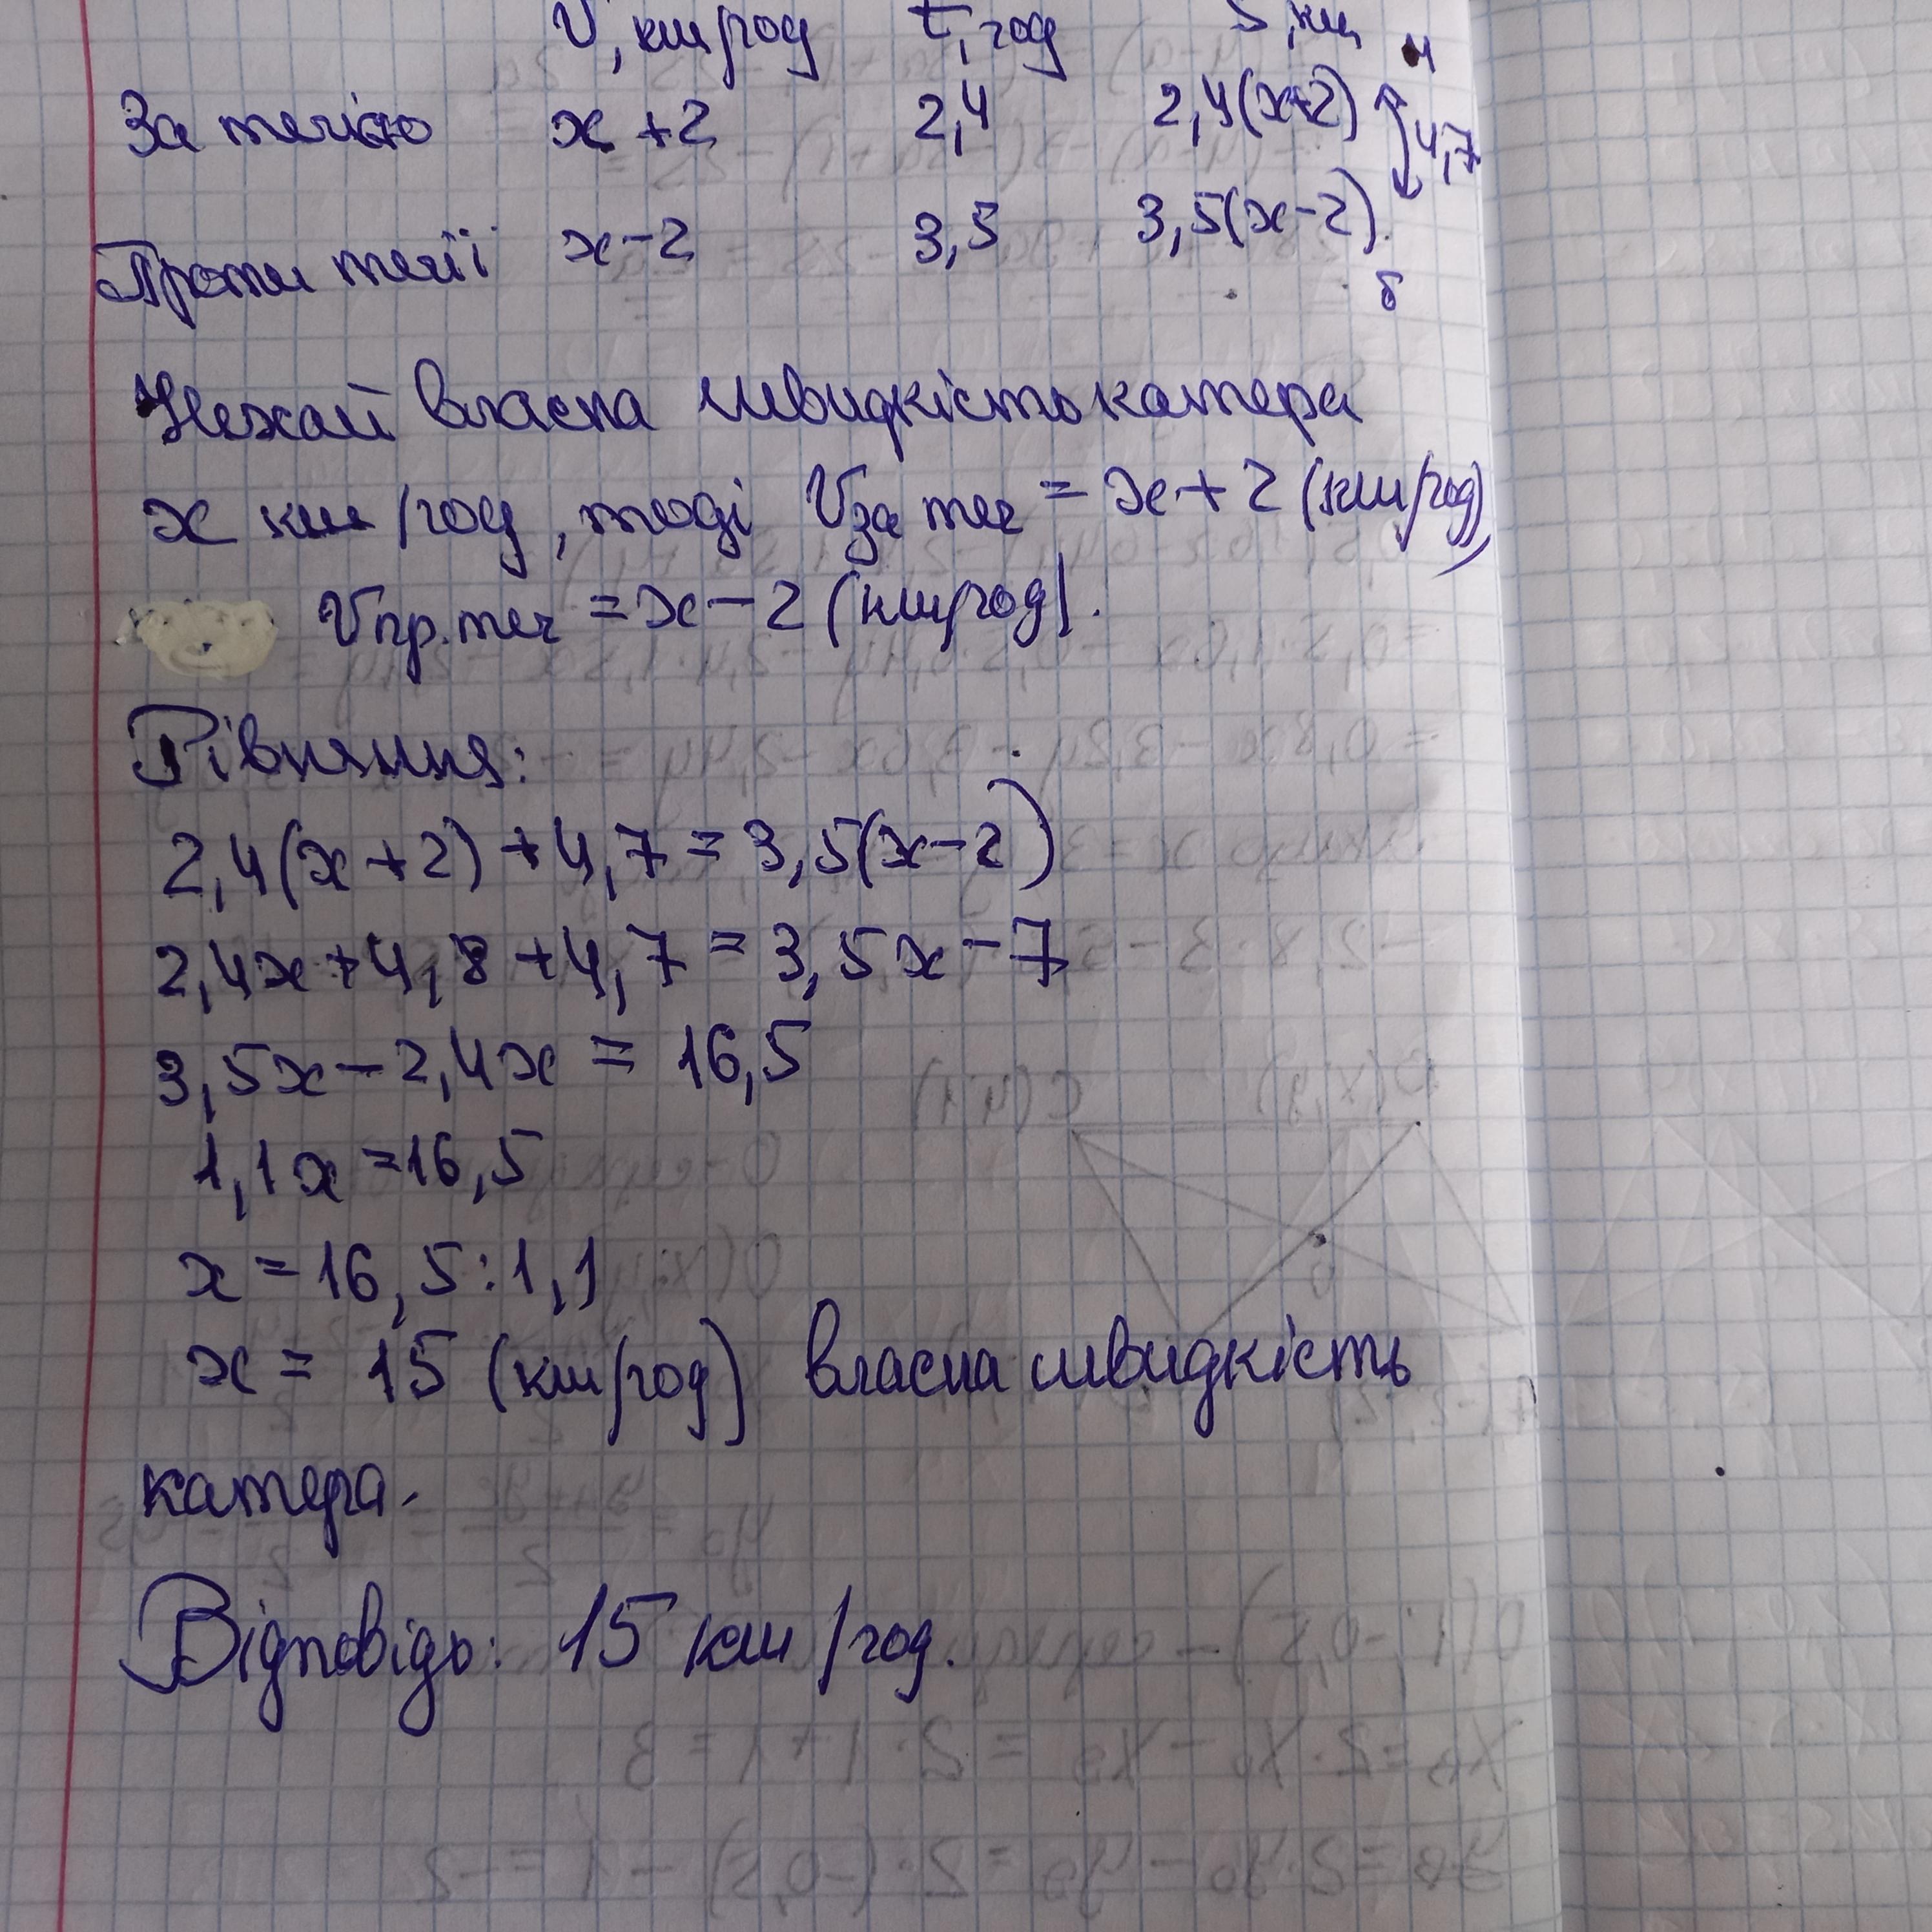 V, км/год t, год S, км
м
За течією x+2 2,4 2,4(x+2)
4,7
Проти течії x-2 3,5 3,5(x-2)
б
Нехай власна швидкість катера
x км/год, тоді Vза теч = x+2 (км/год),
Vпр.теч = x-2 (км/год).
Рівняння:
2,4(x+2)+4,7=3,5(x-2)
2,4x+4,8+4,7=3,5x-7
3,5x-2,4x=16,5
1,1x=16,5
x=16,5:1,1
x=15 (км/год) власна швидкість
катера.
Відповідь: 15 км/год.